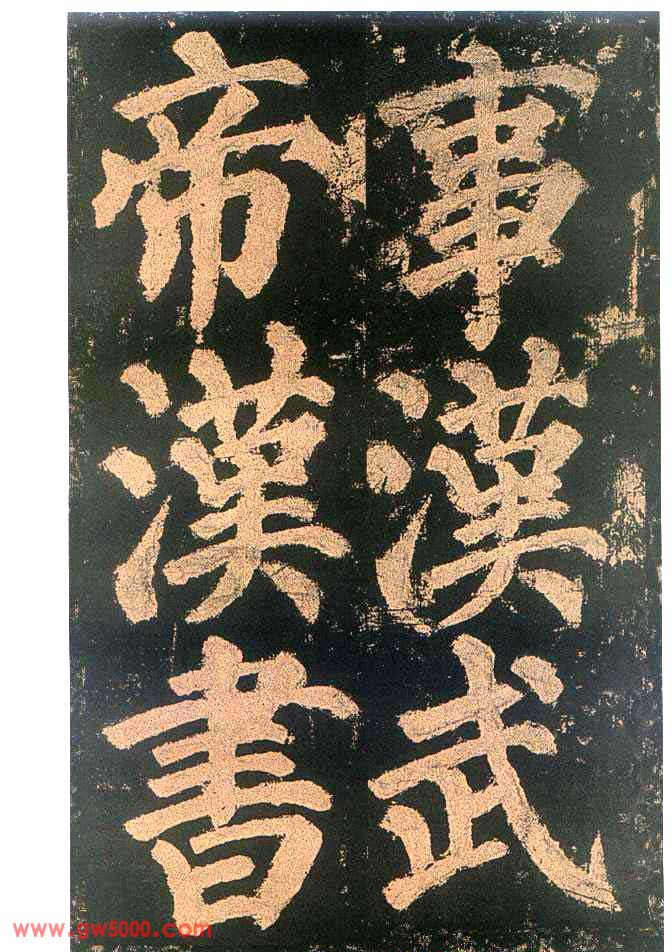 事漢武
帝漢書
www.gw5000.com